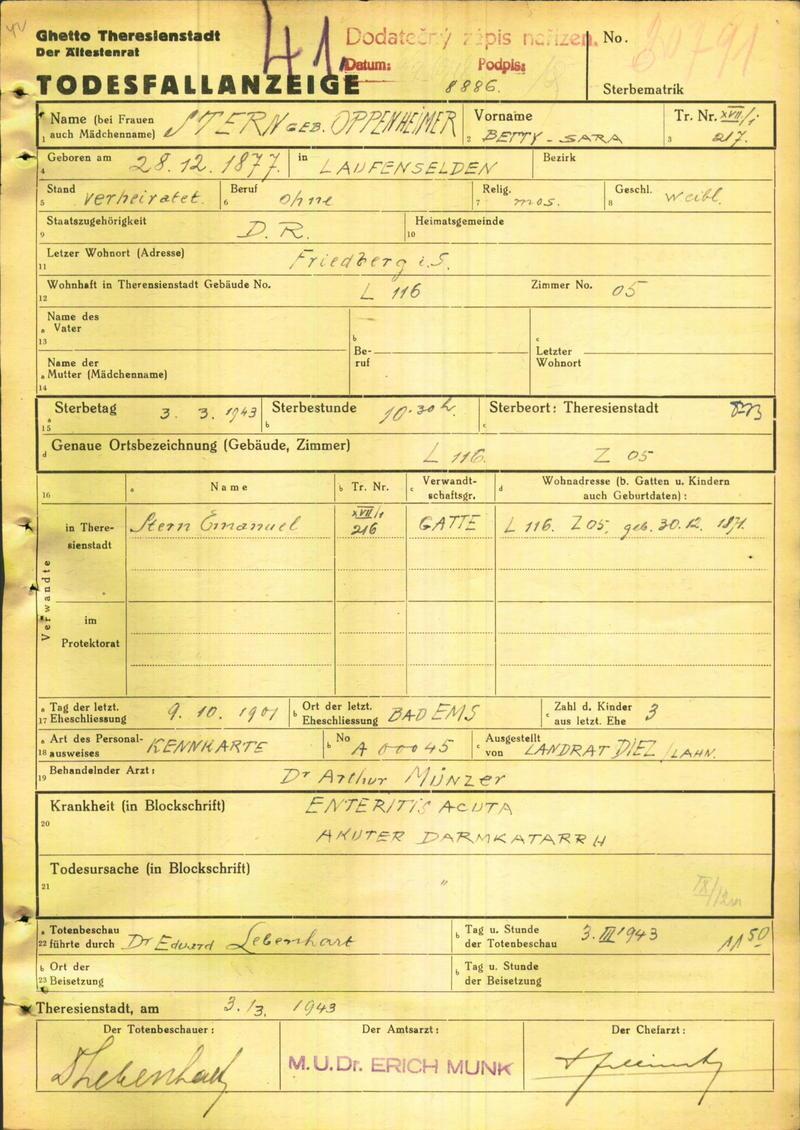 Ghetto Theresienstadt
Der Ältestenrat
41
Dodatečný zápis nařízen.
Datum: Podpis:
No.
TODESFALLANZEIGE
8886.
Sterbematrik
Name (bei Frauen auch Mädchenname) STERN GEB. OPPENHEIMER
1
Vorname
2 BETTY - SARA
Tr. Nr. XVII/1.
3 217.
Geboren am 28. 12. 1877. in LAUFENSELDEN Bezirk
4
Stand verheiratet. Beruf ohne Relig. mos. Geschl. weibl.
5 6 7 8
Staatszugehörigkeit D. R. Heimatsgemeinde
9 10
Letzer Wohnort (Adresse) Friedberg i. S.
11
Wohnhaft in Therensienstadt Gebäude No. L 116 Zimmer No. 05
12
Name des
a Vater
13
b Beruf
c Letzter Wohnort
Name der
a Mutter (Mädchenname)
14
Sterbetag 3. 3. 1943 Sterbestunde 10.30 h. Sterbeort: Theresienstadt
a 15 b c
d Genaue Ortsbezeichnung (Gebäude, Zimmer) L 116. Z 05
16 a Name b Tr. Nr. c Verwandt-
schaftsgr. d Wohnadresse (b. Gatten u. Kindern
auch Geburtdaten):
Verwandte
in There-
sienstadt
Stern Emanuel XVII/1 216 GATTE L 116. Z 05, geb. 30. 12. 1871.
im
Protektorat
a Tag der letzt.
17 Eheschliessung 9. 10. 1901 b Ort der letzt.
Eheschliessung BAD EMS c Zahl d. Kinder
aus letzt. Ehe 3
a Art des Personal-
18 ausweises KENNKARTE b No A 00045 c Ausgestellt
von LANDRAT DIEZ / LAHN.
Behandelnder Arzt: Dr Arthur MÜNZER
19
Krankheit (in Blockschrift) ENTERITIS ACUTA
20
AKUTER DARMKATARRH
Todesursache (in Blockschrift)
21 "
a Totenbeschau
22 führte durch Dr Eduard Lebenhart b Tag u. Stunde
der Totenbeschau 3. III 1943 11 50
b Ort der
23 Beisetzung b Tag u. Stunde
der Beisetzung
Theresienstadt, am 3. /3. 1943
Der Totenbeschauer: Der Amtsarzt: Der Chefarzt:
M.U.Dr. ERICH MUNK